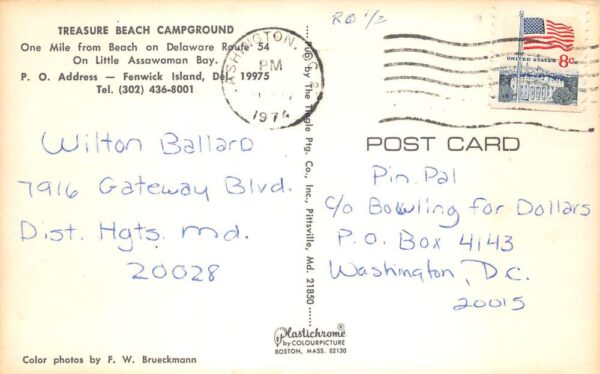 TREASURE BEACH CAMPGROUND
One Mile from Beach on Delaware Route 54
On Little Assawoman Bay.
P. O. Address — Fenwick Island, Del. 19975
Tel. (302) 436-8001
Wilton Ballard
7916 Gateway Blvd.
Dist. Hgts. Md.
20028
Color photos by F. W. Brueckmann
WASHINGTON, D.C.
PM
1974
Pub. by The Tingle Ptg. Co., Inc., Pittsville, Md. 21850
Plastichrome®
by COLOURPICTURE
BOSTON, MASS. 02130
UNITED STATES 8c
POST CARD
Pin Pal
c/o Bowling for Dollars
P.O. Box 4143
Washington, D.C.
20015